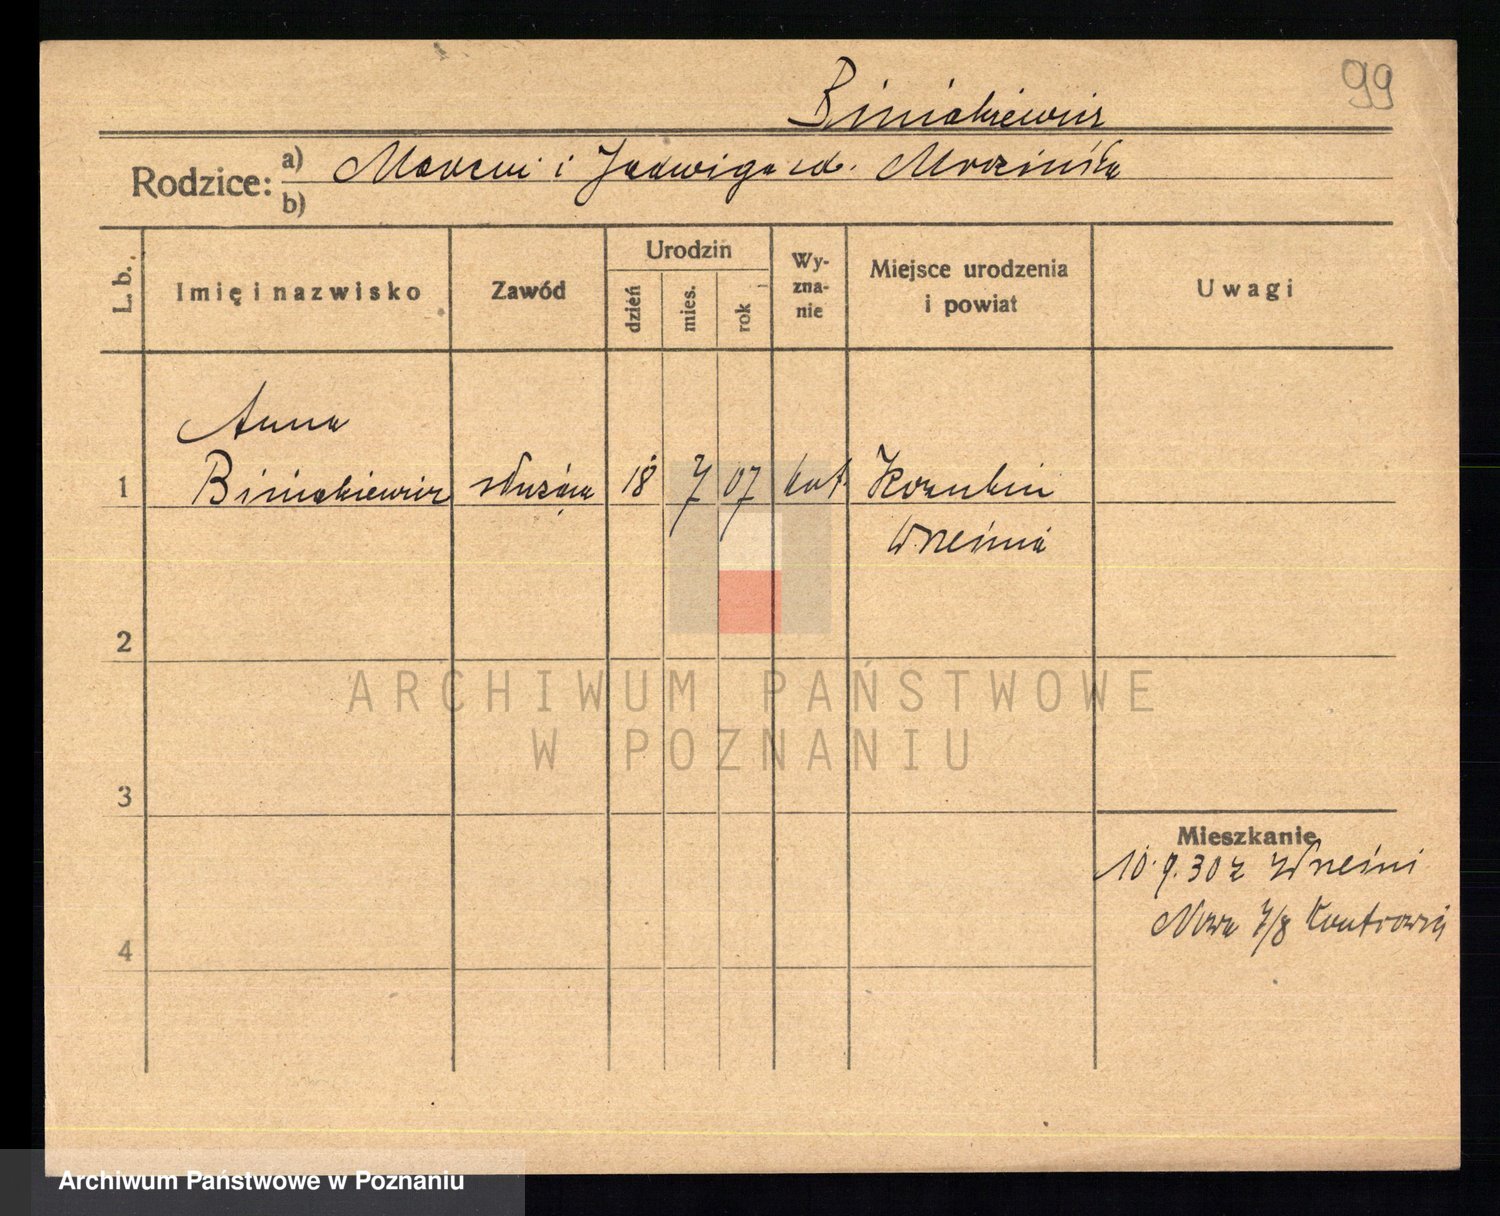 99
Biniakiewicz
Rodzice: a) Marcin i Jadwiga zd.
b)
L. b.
Imię i nazwisko
Zawód
Urodzin
dzień
mies.
rok
Wy-
zna-
nie
Miejsce urodzenia
i powiat
Uwagi
Anna
1 Biniakiewicz służąca 18 7 07 kat.
Września
2
ARCHIWUM PAŃSTWOWE
W POZNANIU
3
Mieszkanie
10.9.30 z Wrześni
Nowa 7/8
4
Archiwum Państwowe w Poznaniu